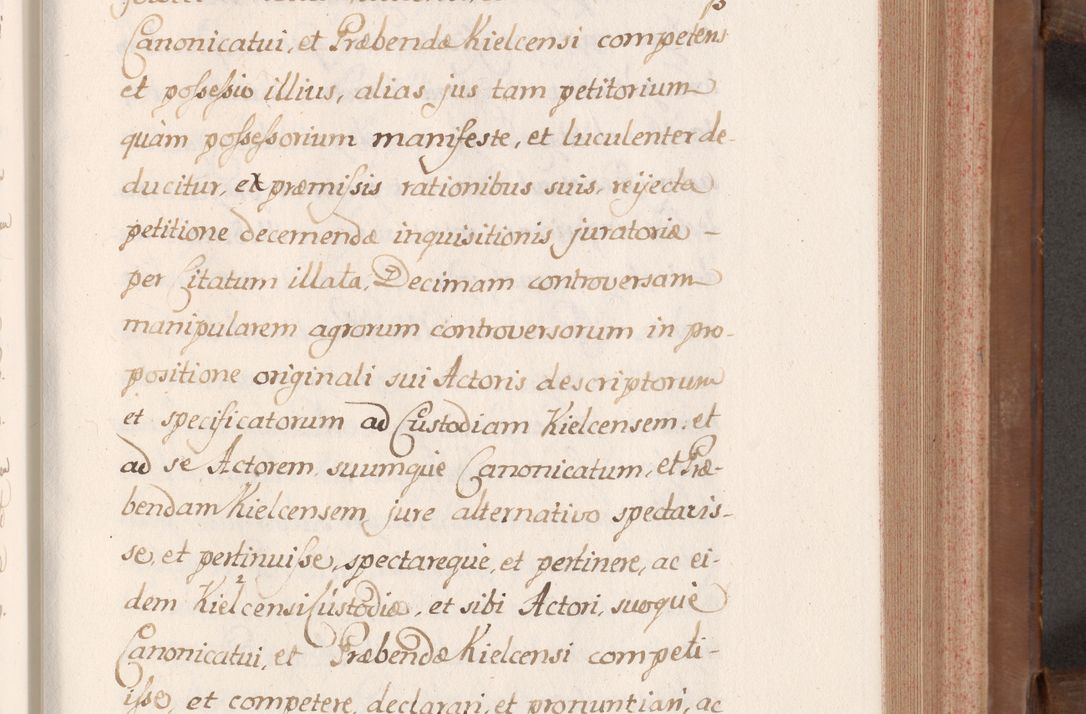 Canonicatui, et Præbendæ Kielcensi competens
et possessio illius, alias jus tam petitorium
quàm possessorium manifeste, et luculenter de-
ducitur, ex præmissis rationibus suis, reijecta
petitione decernendæ inquisitionis juratoriæ -
per Citatum illata, Decimam controversam
manipularem agrorum controversorum in pro-
positione originali sui Actoris descriptorum
et specificatorum ad Custodiam Kielcensem, et
ad se Actorem, suumque Canonicatum, et Præ-
bendam Kielcensem jure alternativo spectavis-
se, et pertinuisse, spectareque, et pertinere, ac ei-
dem Kielcensi Custodiæ, et sibi Actori, suoque
Canonicatui, et Præbendæ Kielcensi competi-
isse, et competere, declarari, et pronuntiari, ac